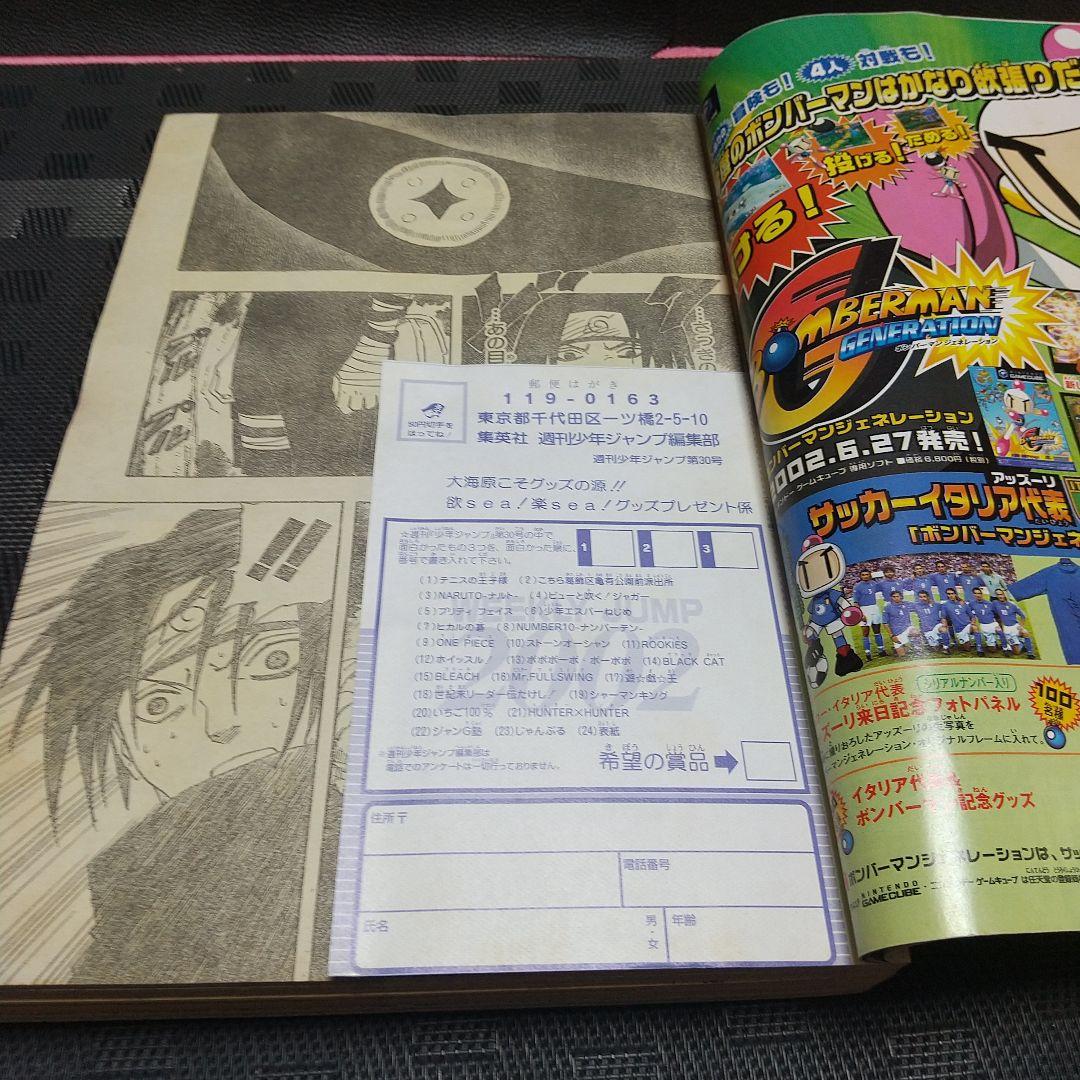 …あの目…
…さっきの
!!
郵便はがき
119-0163
50円切手を
はってね！
東京都千代田区一ツ橋2-5-10
集英社 週刊少年ジャンプ編集部
週刊少年ジャンプ第30号
大海原こそグッズの源!!
欲sea！楽sea！グッズプレゼント係
☆週刊『少年ジャンプ』第30号の中で
面白かったもの３つを、面白かった順に、
番号で書き入れて下さい。
1 2 3
(1)テニスの王子様 (2)こちら葛飾区亀有公園前派出所
(3)NARUTO-ナルト- (4)ピューと吹く！ジャガー
(5)プリティ フェイス (6)少年エスパーねじめ
(7)ヒカルの碁 (8)NUMBER10-ナンバーテン-
(9)ONE PIECE (10)ストーンオーシャン (11)ROOKIES
(12)ホイッスル！ (13)ボボボーボ・ボーボボ (14)BLACK CAT
(15)BLEACH (16)Mr.FULLSWING (17)遊☆戯☆王
(18)世紀末リーダー伝たけし！ (19)シャーマンキング
(20)いちご100％ (21)HUNTER×HUNTER
(22)ジャンG塾 (23)じゃんぷる (24)表紙
※週刊少年ジャンプ編集部は
電話でのアンケートは一切行っておりません。
希望の賞品
住所 〒
電話番号
氏名
男・女
年齢
冒険も！ 4人 対戦も！
のボンバーマンはかなり欲張りだ
ける！
投げる！
ためる！
MBERMAN
GENERATION
ボンバーマンジェネレーション
ンバーマンジェネレーション
2002.6.27発売！
ゲームキューブ専用ソフト ■価格6,800円（税別）
アッズーリ
サッカーイタリア代表
「ボンバーマンジェネ
シリアルナンバー入り
ー・イタリア代表
ズーリ来日記念フォトパネル
100名様
り下ろしたアッズーリの生写真を
ーマンジェネレーション・オリジナルフレームに入れて。
イタリア代表&
ボンバーマン記念グッズ
ボンバーマンジェネレーションは、サッ
NINTENDO
GAMECUBE
ゲームキューブ は任天堂の登録商